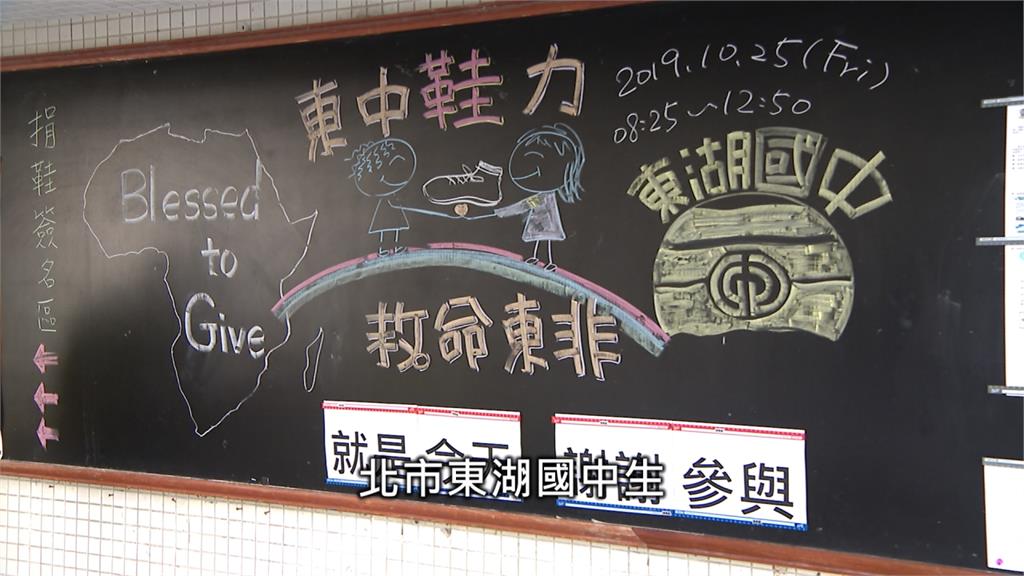 東中鞋力
2019.10.25(Fri)
08:25~12:50
東湖國中
捐鞋簽名區
Blessed
to
Give
救命東非
就是今天
謝謝 參與
北市東湖國中生